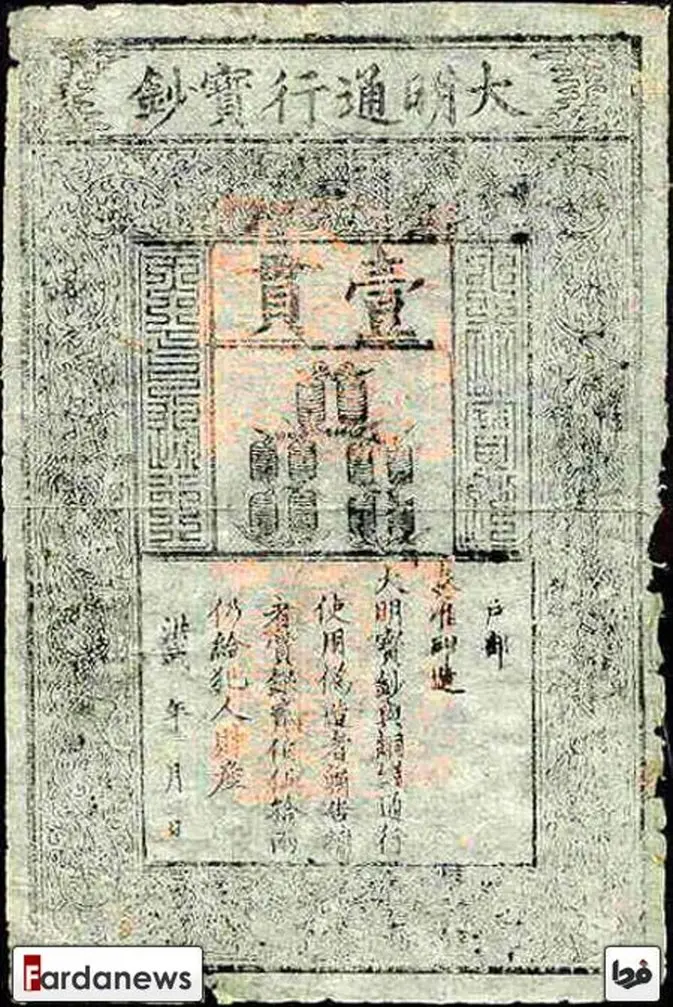 大明通行寶鈔
壹貫
戶部
奏准印造
大明寶鈔與銅錢通行
使用偽造者斬告捕
者賞銀貳伯伍拾兩
仍給犯人財產
洪武 年 月 日
Fardanews
فردا